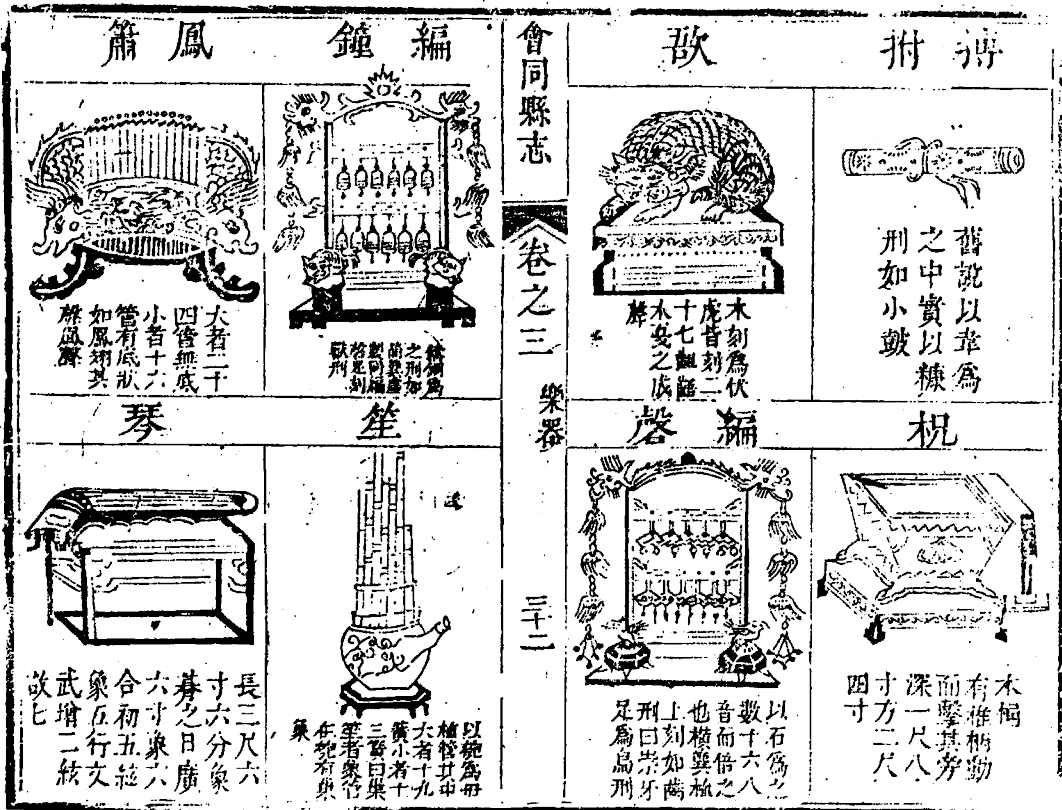 搏拊
舊說以韋為
之中實以糠
刑如小鼓
敔
木刻為伏
虎背刻二
十七齟齬
聲
柷
木桶
有椎柄動
而擊其旁
深一尺八
寸方二尺
四寸
編磬
以石為之
數十六八
音而倍之
也橫簨樅
上刻如齒
刑曰崇牙
足為鳥刑
會同縣志
卷之三
樂器
三十二
編鐘
獸刑
鳳簫
大者二十
四管無底
小者十六
管有底狀
如鳳翅其
聲鳳聲
笙
以匏為母
植管其中
大者十九
簧小者十
三簧曰巢
笙者象竹
在匏有巢
象
琴
長三尺六
寸六分象
朞之日廣
六寸象六
合初五絃
象五行文
武增二絃
故七